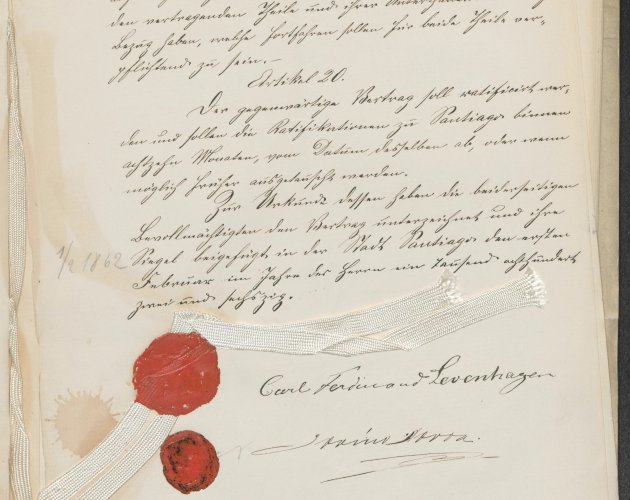 den vertragenden Theile und ihrer Unterthanen
Bezug haben, welche fortfahren sollen für beide Theile ver-
pflichtend zu sein.-
Artikel 20.
Der gegenwärtige Vertrag soll ratificirt wer-
den und sollen die Ratifikationen zu Santiago binnen
achtzehn Monaten, vom Datum desselben ab, oder wenn
möglich früher ausgetauscht werden.
Zur Urkunde dessen haben die beiderseitigen
Bevollmächtigten den Vertrag unterzeichnet und ihre
Siegel beigefügt, in der Stadt Santiago den ersten
Februar im Jahre des Herrn ein Tausend achthundert
zwei und sechszig.
1/2 1862
Carl Ferdinand Levenhagen